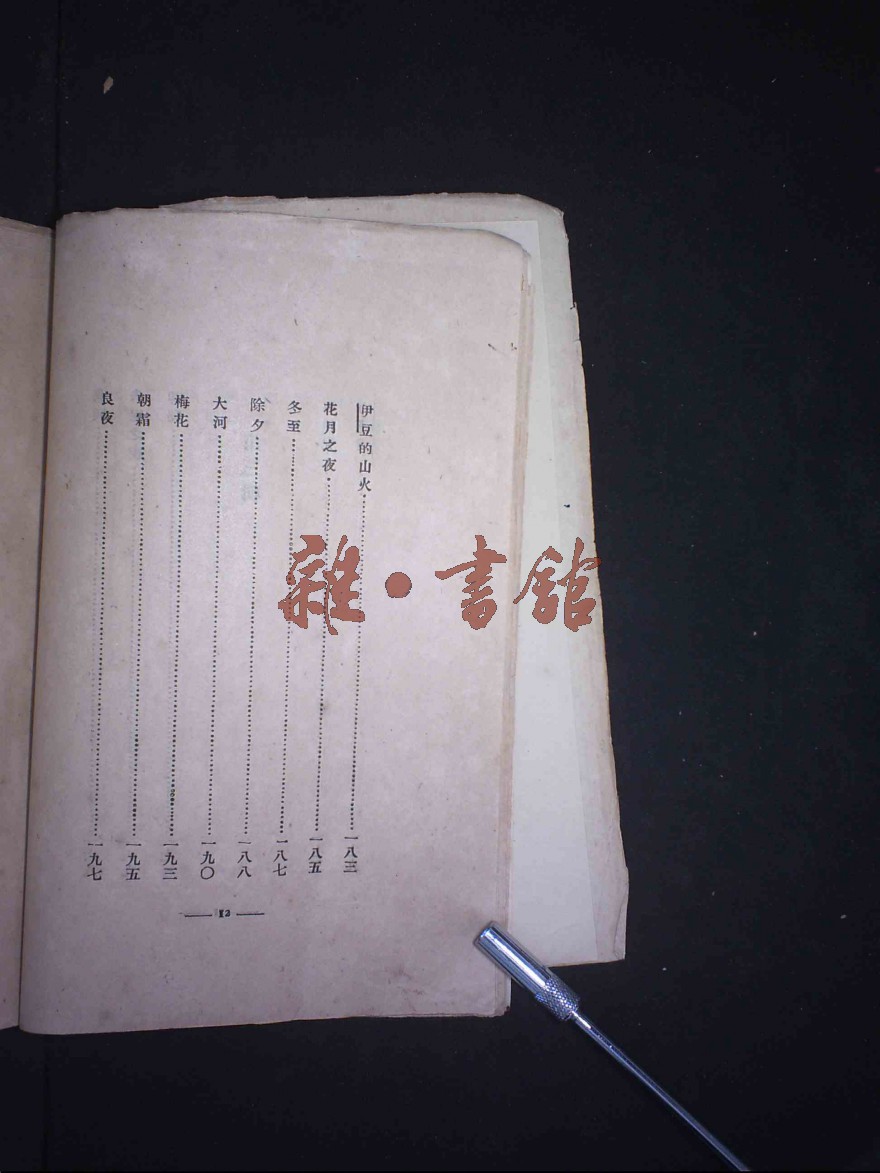 伊豆的山火……一八三
花月之夜……一八五
冬至……一八七
除夕……一八八
大河……一九〇
梅花……一九三
朝霜……一九五
良夜……一九七
— 12 —
雜·書館